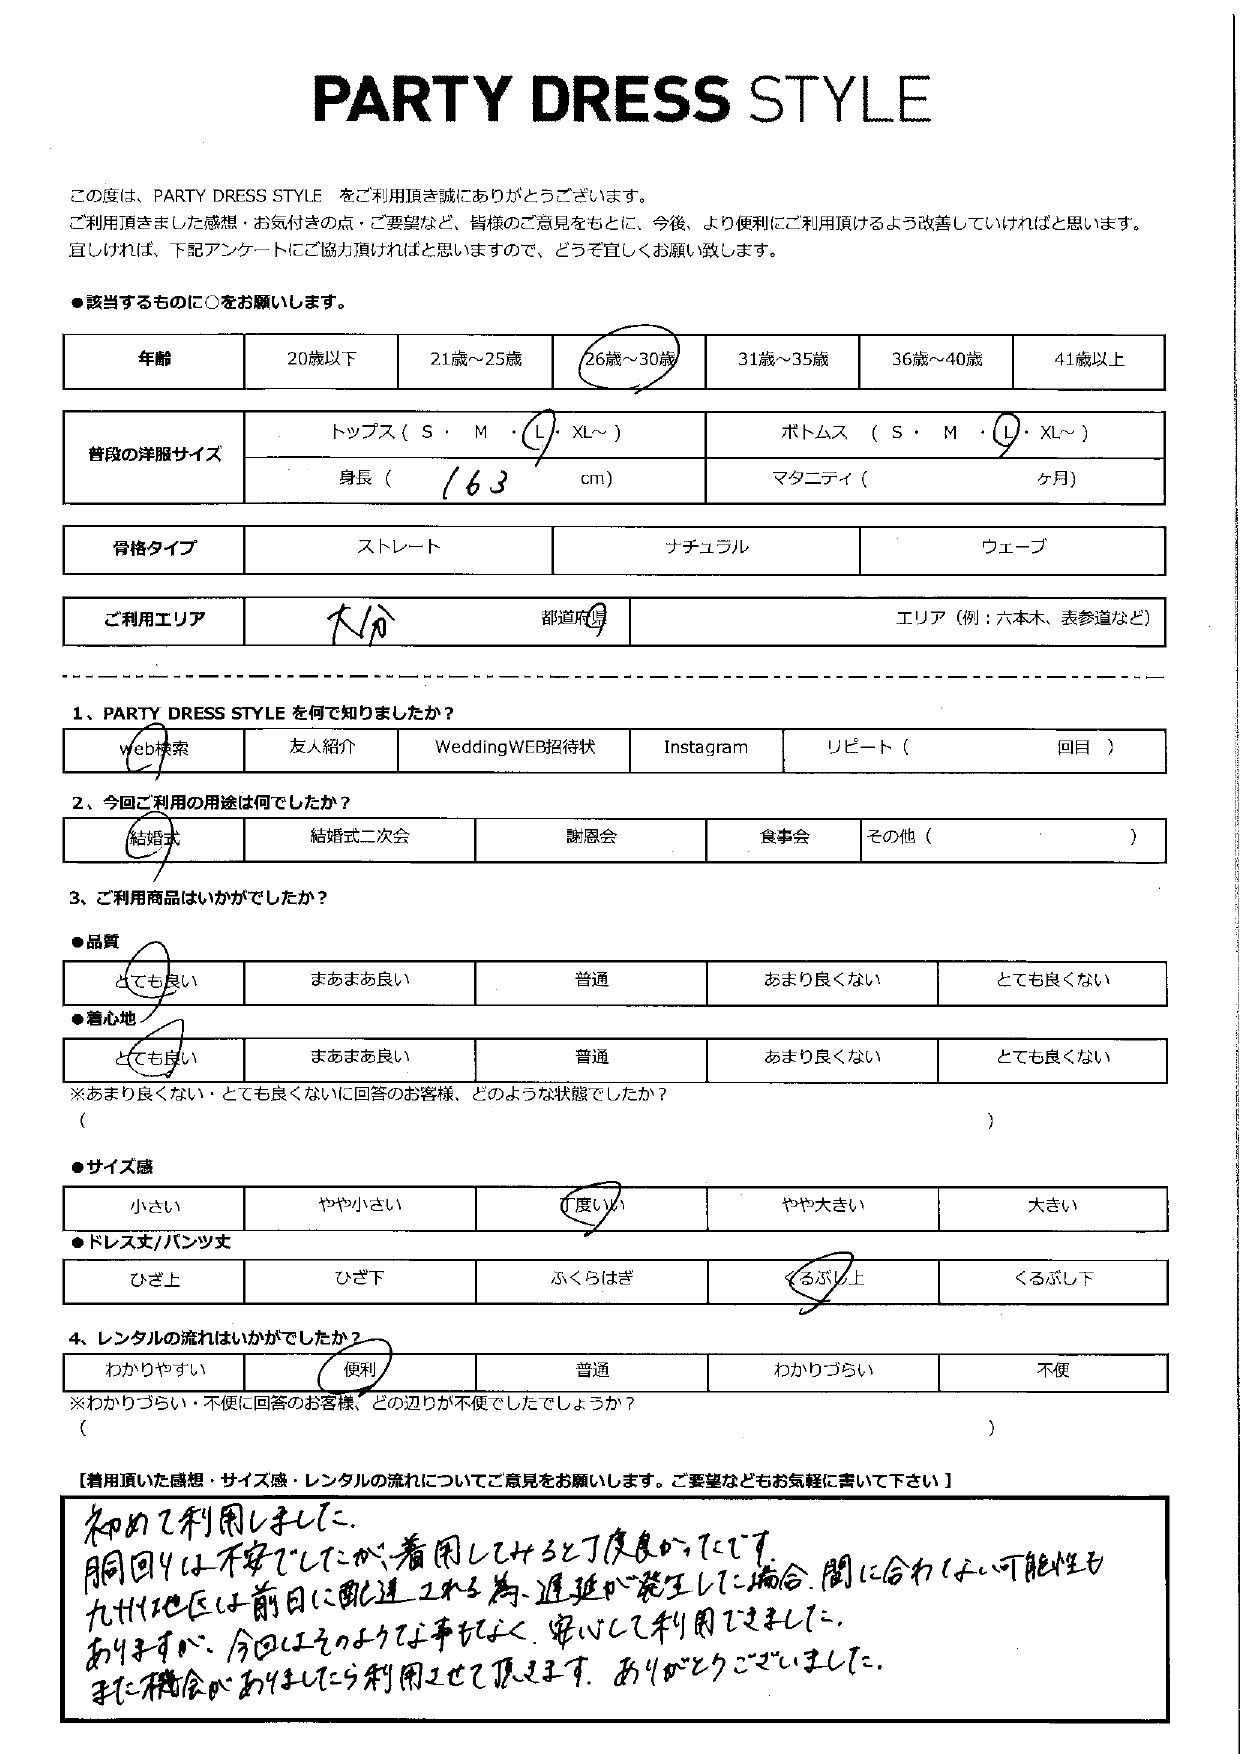 PARTY DRESS STYLE
この度は、PARTY DRESS STYLE をご利用頂き誠にありがとうございます。
ご利用頂きました感想・お気付きの点・ご要望など、皆様のご意見をもとに、今後、より便利にご利用頂けるよう改善していければと思います。
宜しければ、下記アンケートにご協力頂ければと思いますので、どうぞ宜しくお願い致します。
●該当するものに○をお願いします。
年齢 20歳以下 21歳～25歳 26歳～30歳 31歳～35歳 36歳～40歳 41歳以上
普段の洋服サイズ
トップス ( S ・ M ・ L ・ XL～ ) ボトムス ( S ・ M ・ L ・ XL～ )
身長 ( 163 cm) マタニティ ( ケ月)
骨格タイプ ストレート ナチュラル ウェーブ
ご利用エリア 大分 都道府県 エリア（例：六本木、表参道など）
1、PARTY DRESS STYLE を何で知りましたか？
web検索 友人紹介 WeddingWEB招待状 Instagram リピート ( 回目 )
2、今回ご利用の用途は何でしたか？
結婚式 結婚式二次会 謝恩会 食事会 その他 ( )
3、ご利用商品はいかがでしたか？
●品質
とても良い まあまあ良い 普通 あまり良くない とても良くない
●着心地
とても良い まあまあ良い 普通 あまり良くない とても良くない
※あまり良くない・とても良くないに回答のお客様、どのような状態でしたか？
( )
●サイズ感
小さい やや小さい 丁度いい やや大きい 大きい
●ドレス丈/パンツ丈
ひざ上 ひざ下 ふくらはぎ くるぶし上 くるぶし下
4、レンタルの流れはいかがでしたか？
わかりやすい 便利 普通 わかりづらい 不便
※わかりづらい・不便に回答のお客様、どの辺りが不便でしたでしょうか？
( )
【着用頂いた感想・サイズ感・レンタルの流れについてご意見をお願いします。ご要望などもお気軽に書いて下さい】
初めて利用しました。
胴回りは不安でしたが、着用してみると丁度良かったです。
九州地区は前日に配達される為、遅延が発生した場合、間に合わない可能性も
ありますが、今回はそのような事もなく、安心して利用できました。
また機会がありましたら利用させて頂きます。ありがとうございました。